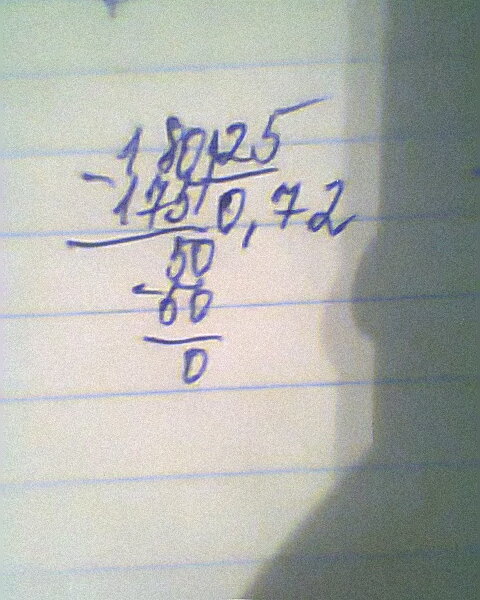 - 180|25
175|0,72
50
- 50
0